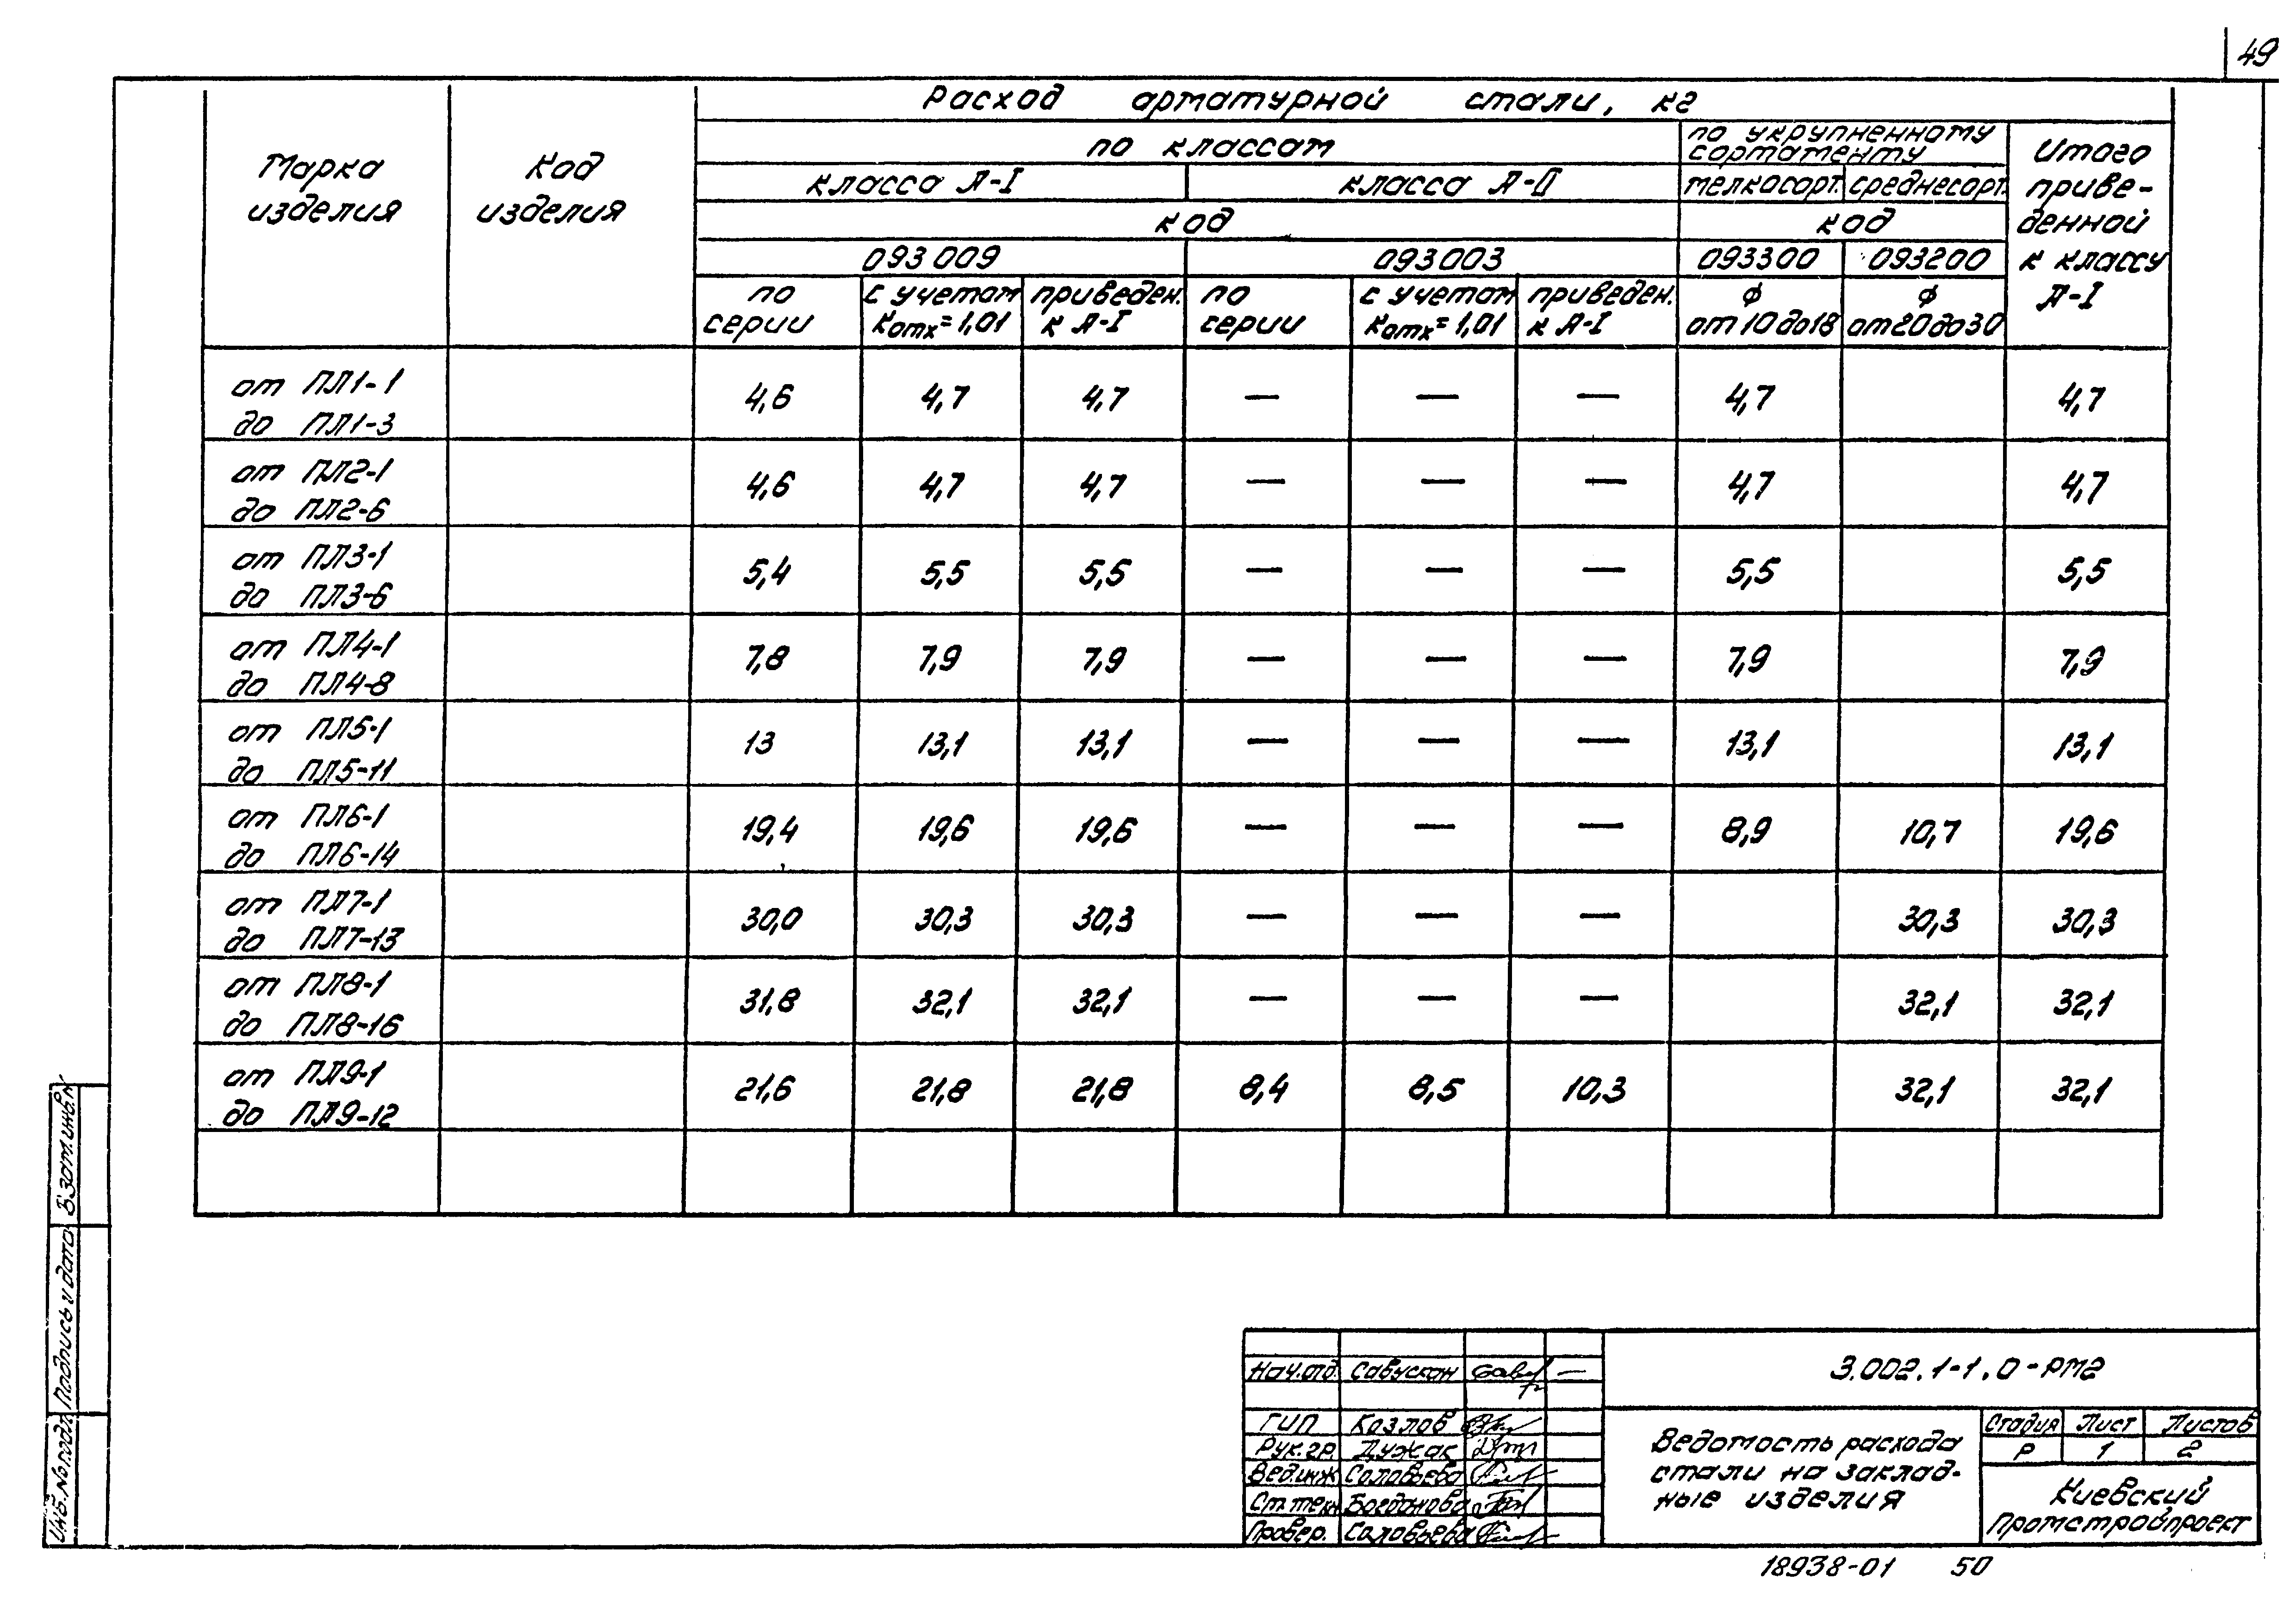 49
Расход арматурной стали, кг
Марка изделия
Код изделия
по классам
по укрупненному сортаменту
Итого приве-денной к классу А-I
класса А-I
класса А-II
мелкосорт.
среднесорт.
код
код
093009
093003
093300
093200
по серии
с учетом Kотх=1,01
приведен. к А-I
по серии
с учетом Kотх=1,01
приведен. к А-I
ф от 10 до 18
ф от 20 до 30
от ПЛ1-1 до ПЛ1-3 4,6 4,7 4,7 — — — 4,7 4,7
от ПЛ2-1 до ПЛ2-6 4,6 4,7 4,7 — — — 4,7 4,7
от ПЛ3-1 до ПЛ3-6 5,4 5,5 5,5 — — — 5,5 5,5
от ПЛ4-1 до ПЛ4-8 7,8 7,9 7,9 — — — 7,9 7,9
от ПЛ5-1 до ПЛ5-11 13 13,1 13,1 — — — 13,1 13,1
от ПЛ6-1 до ПЛ6-14 19,4 19,6 19,6 — — — 8,9 10,7 19,6
от ПЛ7-1 до ПЛ7-13 30,0 30,3 30,3 — — — 30,3 30,3
от ПЛ8-1 до ПЛ8-16 31,8 32,1 32,1 — — — 32,1 32,1
от ПЛ9-1 до ПЛ9-12 21,6 21,8 21,8 8,4 8,5 10,3 32,1 32,1
Взам.инв.№
Подпись и дата
Инв.№ подл.
Нач.отд. Савускан —
ГИП Козлов
Рук.гр. Дужак
Вед.инж Соловьева
Ст.техн Богданова
Провер. Соловьева
3.002.1-1.0-РМ2
Ведомость расхода
стали на заклад-
ные изделия
Стадия Лист Листов
Р 1 2
Киевский
Промстройпроект
18938-01 50